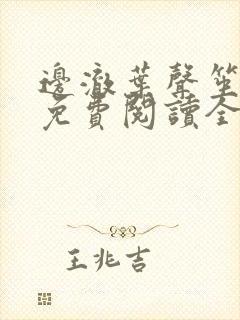 邊澈葉聲笙
免費閱讀全
王兆吉